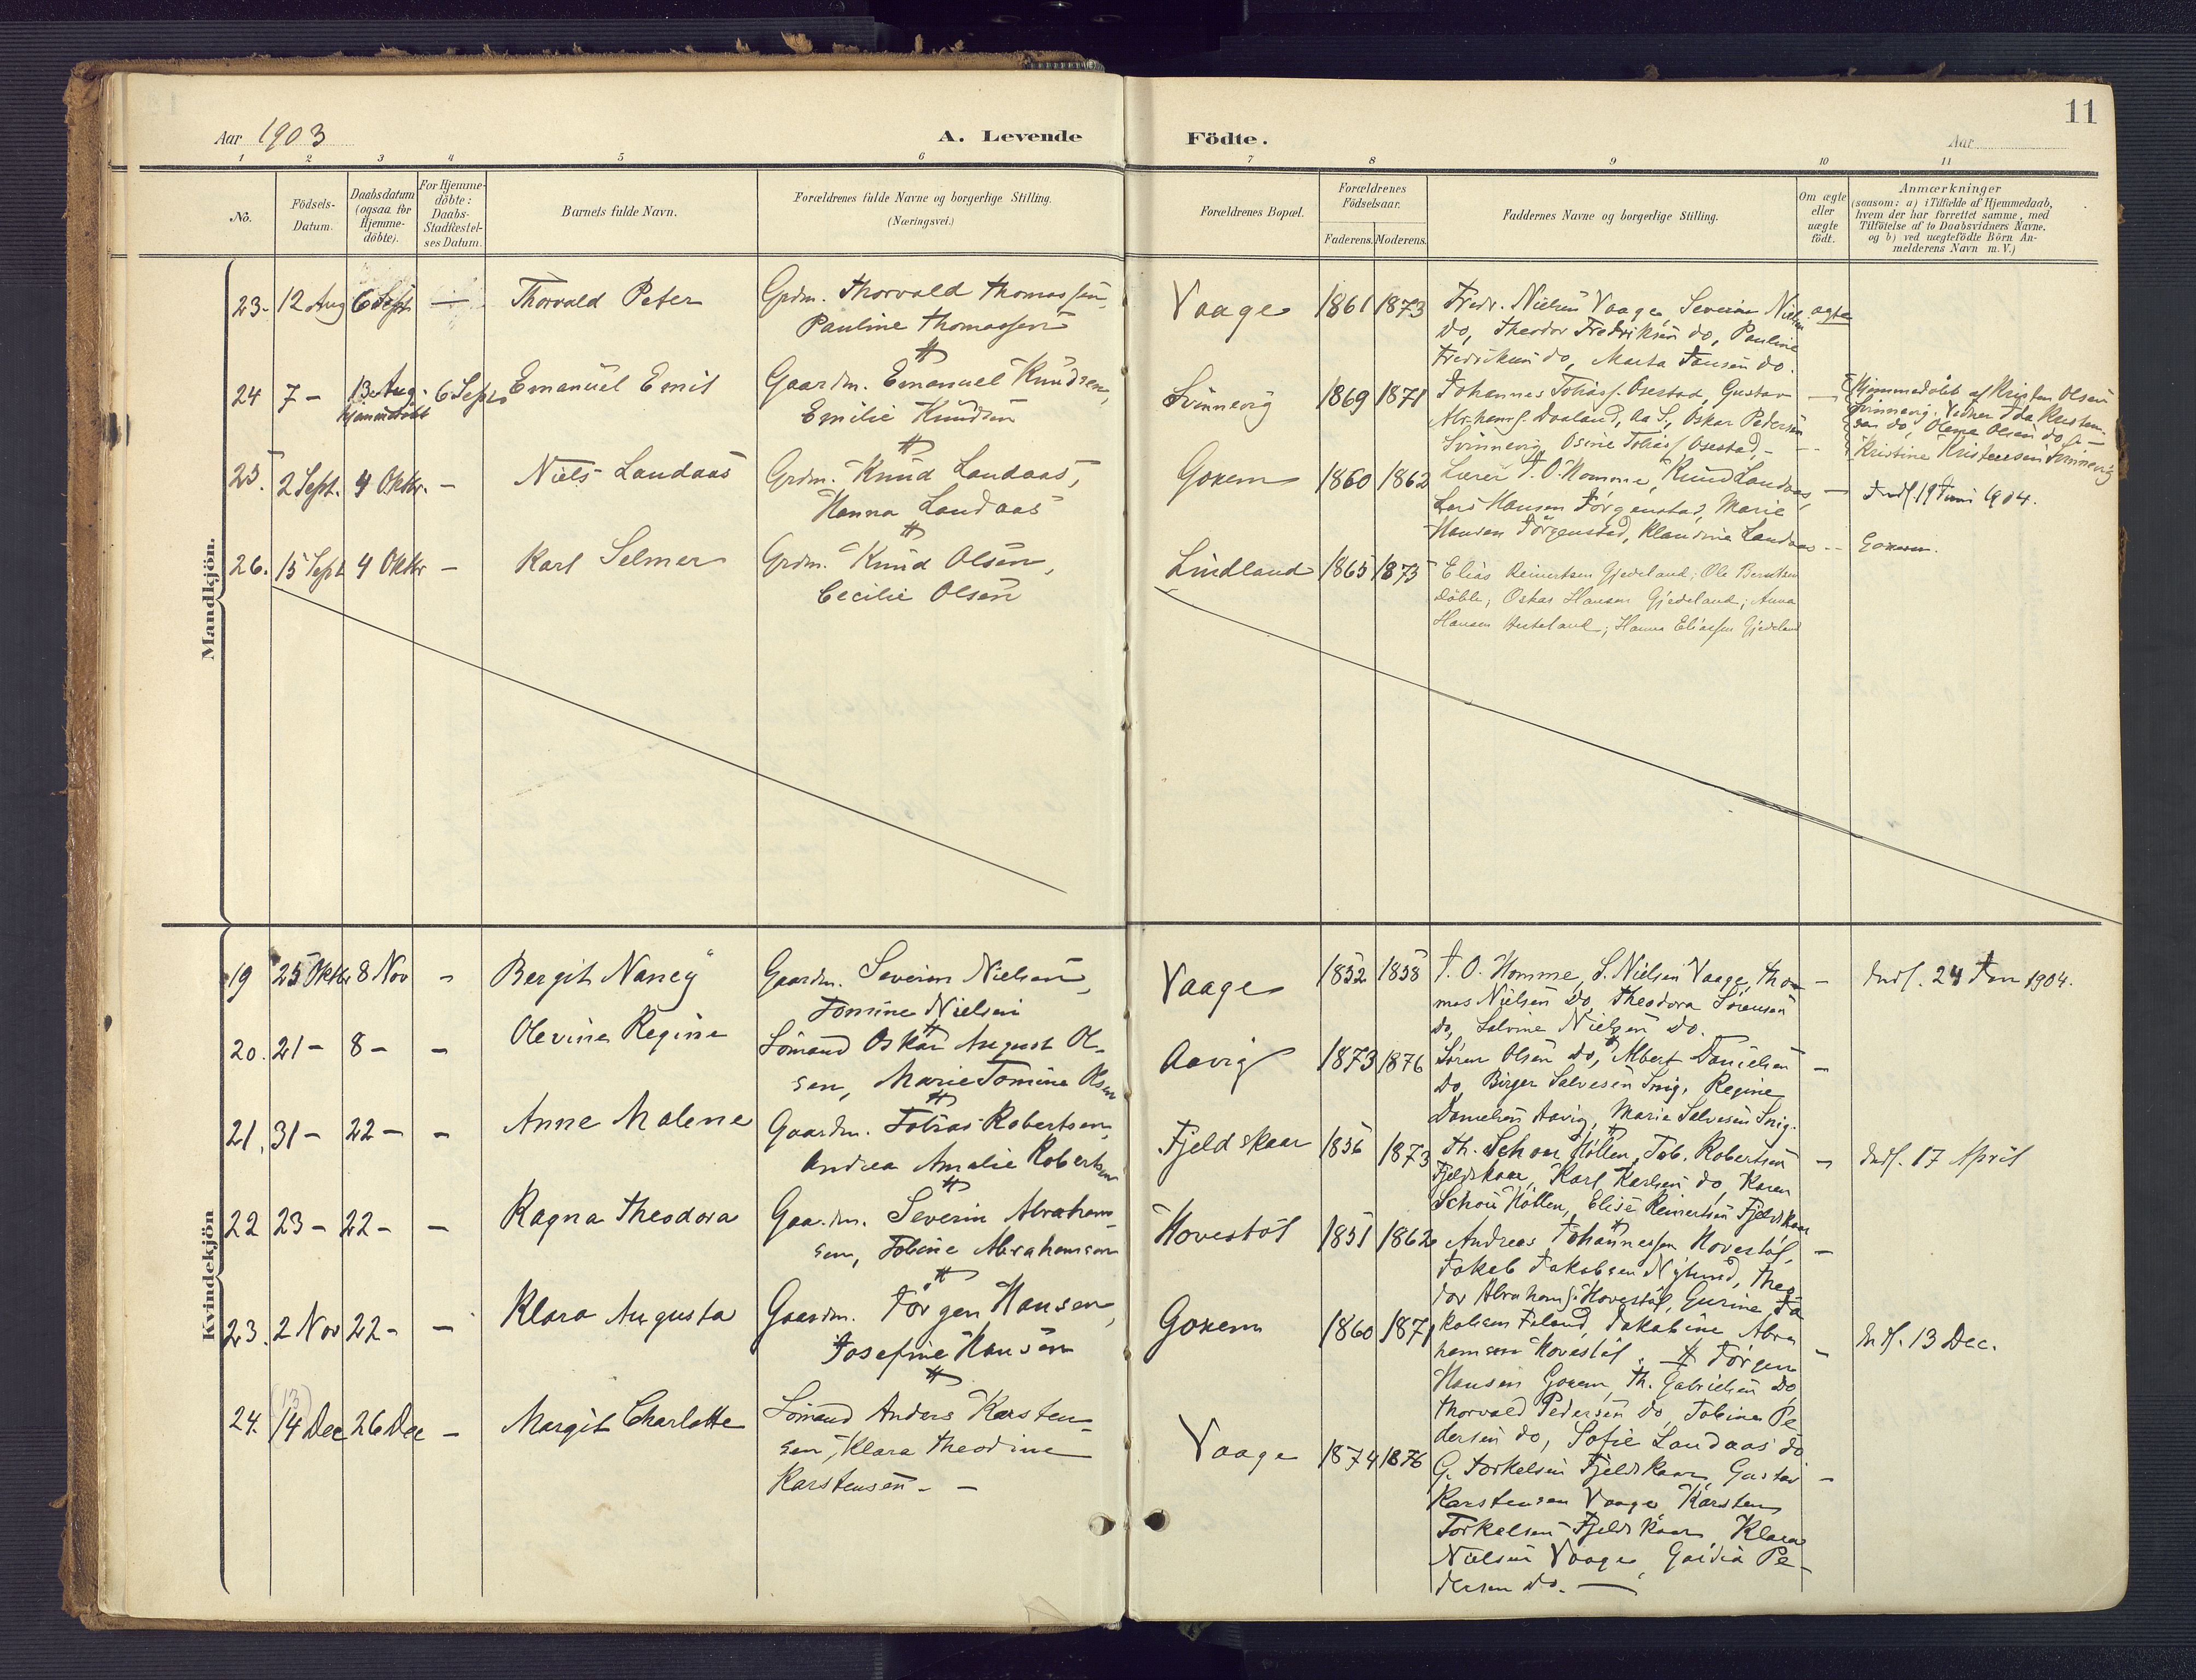 11
Aar 1903
A. Levende Födte.
Aar
1 2 3 4 5 6 7 8 9 10 11
No.
Födsels-Datum.
Daabsdatum (ogsaa for Hjemme-döbte).
For Hjemme-döbte: Daabs-Stadfæstel-ses Datum.
Barnets fulde Navn.
Forældrenes fulde Navne og borgerlige Stilling.
(Næringsvei.)
Forældrenes Bopæl.
Forældrenes Födselsaar.
Faderens. Moderens.
Faddernes Navne og borgerlige Stilling.
Om ægte eller uægte födt.
Anmærkninger
(saasom: a) i Tilfælde af Hjemmedaab, hvem der har forrettet samme, med Tilföielse af to Daabsvidners Navne, og b) ved uægtefödte Börn Anmelderens Navn m. V.)
Mandkjön.
23. 12 Aug 6 Sept — Thorvald Peter
Grdm. Thorvald Thomassen,
Pauline Thomassen
Vaage 1861 1873
Fredr. Nielsen Vaage, Severine Nielsen
do, Theodor Fredriksen do, Pauline
Fredriksen do, Marta Jensen do.
ægte
24 7 — 13 Aug. hjemmedöbt 6 Sept. Emanuel Emil
Gaardm. Emanuel Knudsen,
Emilie Knudsen
Svinnevig 1869 1871
Johannes Tobiass. Osestad, Gustav
Abrahams. Dvaland, Aa S., Oskar Pedersen
Svinnevig, Osine Tobiass Osestad, —
Hjemmedöbt af Kristen Olsen
Svinnevig. Vidner Ida Kristen-
sen do, Olene Olsen do. —
Kristine Kristensen Svinnevig
25. 2 Sept. 4 Oktbr. — Niels Landaas
Grdm. Knud Landaas,
Hanna Landaas
Goxem 1860 1862
Lærer T. O. Homme, Knud Landaas,
Lars Hansen Jörgenstad, Marie
Hansen Jörgenstad, Klaudine Landaas
Indf. 19 Juni 1904.
Goxem.
26. 15 Sept 4 Oktbr — Karl Selmer
Grdm. Knud Olsen,
Cecilie Olsen
Lindland 1865 1875
Elias Reinertsen Gjedeland; Ole Berntsen
Döble, Oskar Hansen Gjedeland; Anna
Hansen Hesteland; Hanna Eliassen Gjedeland
Kvindekjön
19 25 Oktbr 8 Nov - Bergit Nancy
Gaardm. Severin Nielsen,
Tomine Nielsen
Vaage 1852 1858
T. O. Homme, S. Nielsen Vaage, Tho-
mas Nielsen do, Theodora Sörensen
do, Salvine Nielsen do.
Indf. 24 Jan 1904.
20. 21 — 8 — — Olevine Regine
Sömand Oskar August Ol-
sen, Marie Tomine Olsen
Aavig 1873 1876
Sören Olsen do, Albert Danielsen
do, Birger Salvesen Snig, Regine
Danielsen Aavig, Marie Salvesen Snig.
21. 31 — 22 — — Anne Malene
Gaardm. Tobias Robertsen,
Andrea Amalie Robertsen
Fjeldskaar 1856 1873
Th. Schou Höllen, Tob. Robertsen
Fjeldskaar, Karl Karlsen do, Karen
Schou Höllen, Elise Reinertsen Fjeldskaar
Indf. 17 April
22 23 — 22 — — Ragna Theodora
Gaardm. Severin Abraham-
sen, Tobine Abrahamsen
Hovestöl 1851 1862
Andreas Johannessen Hovestöl,
Jakob Jakobsen Nylund, Theo-
dor Abrahams. Hovestöl, Gurine Ja
kobsen, Jakobine Abra
hamsen Hovestöl.
23. 2 Nov 22 — — Klara Augusta
Gaardm. Jörgen Hansen,
Josefine Hansen
Goxem 1860 1871
Jörgen
Hansen Goxem, Th. Gabrielsen do,
Thorvald Pedersen do, Tobine Pe
dersen do, Sofie Landaas do
Indf. 13 Dec.
24. (13) 14 Dec 26 Dec — Margit Charlotte
Sömand Anders Karsten-
sen, Klara Theodine
Karstensen. —
Vaage 1874 1876
G. Torkelsen Fjeldskaar, Gustav
Karstensen Vaage, Karsten
Torkelsen Fjeldskaar, Klara
Nielsen Vaage, Pe-
dersen do. —